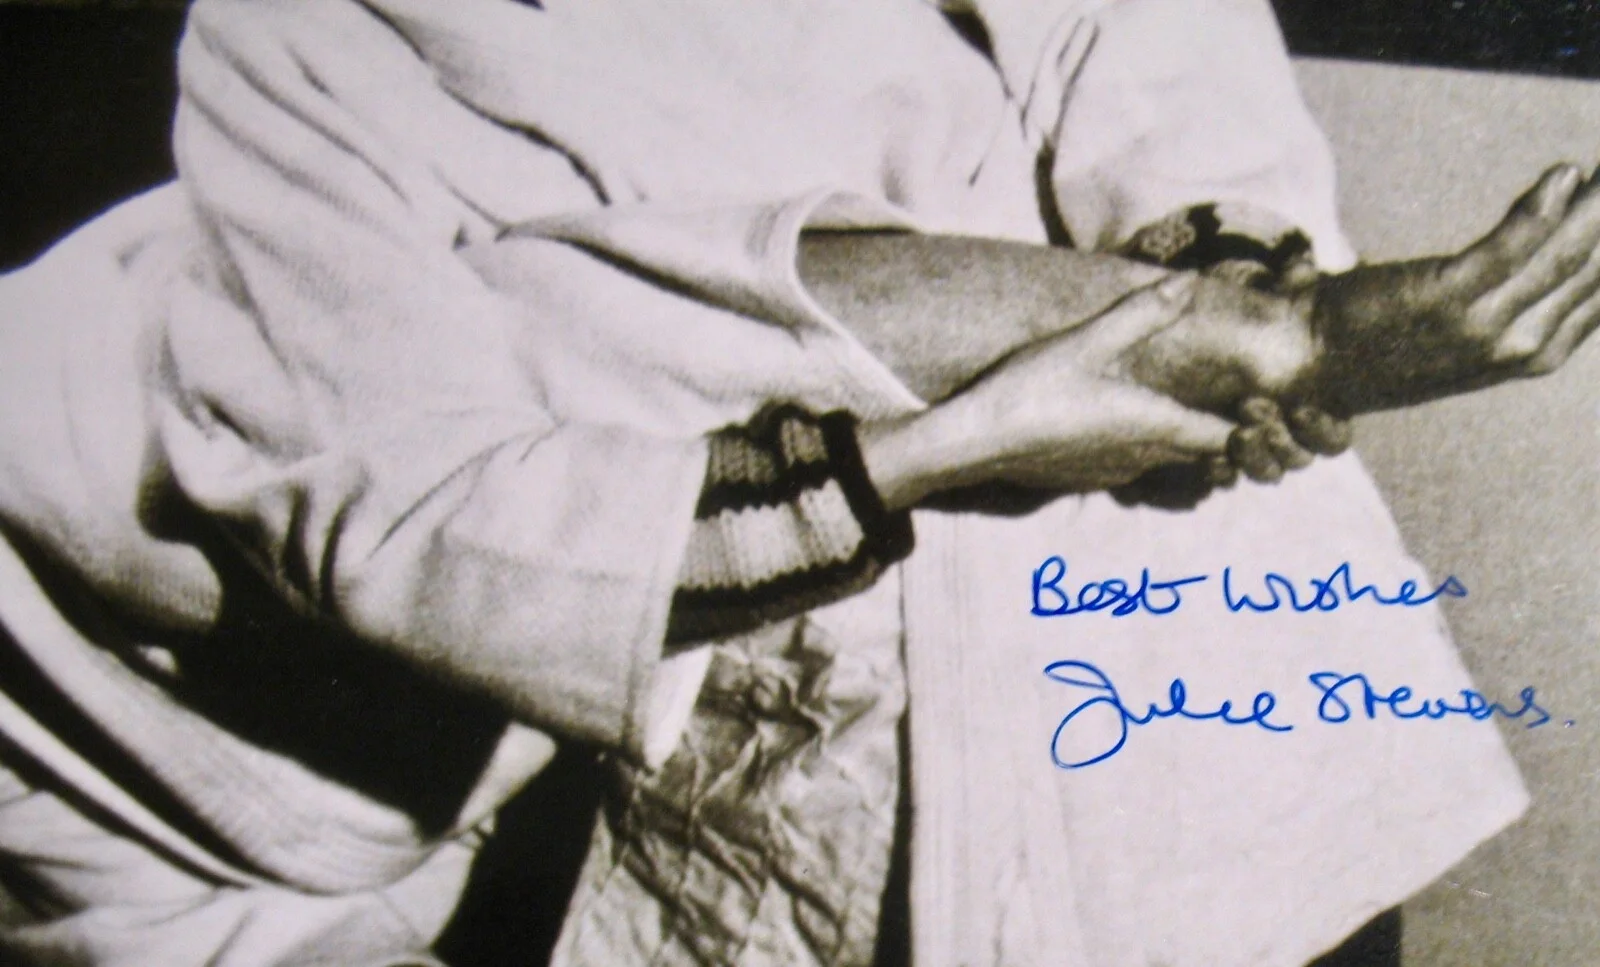 Best Wishes
Julie Stevens.